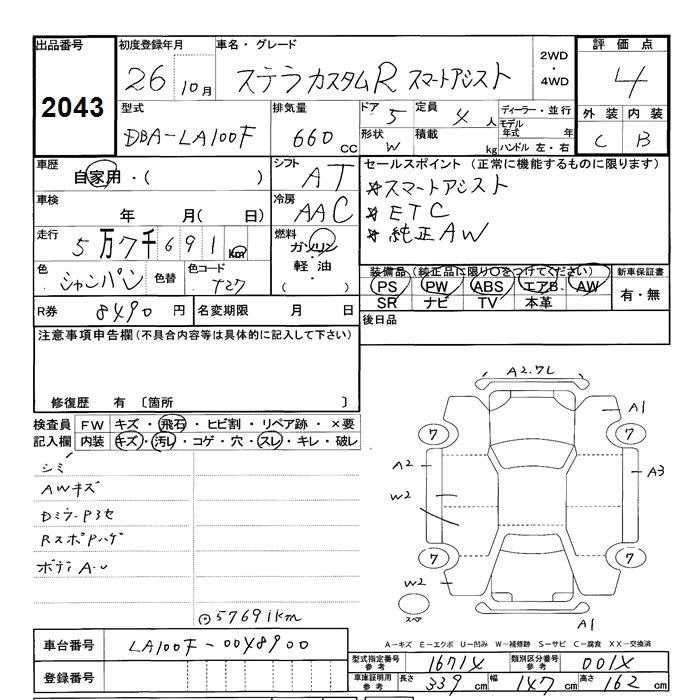 出品番号 初度登録年月 車名・グレード 2WD・4WD 評価点
2043 26 10月 ステラカスタムR スマートアシスト 4
型式 排気量 ドア 5 定員 4人 ディーラー・並行 外装 内装
DBA-LA100F 660cc 形状 W 積載 kg モデル年式 年 ハンドル 左・右 C B
車歴 自家用・( ) シフト AT セールスポイント (正常に機能するものに限ります)
車検 年 月( 日) 冷房 AAC ☆スマートアシスト
☆ETC
走行 5万7千691km 燃料 ガソリン・軽油・( ) ☆純正AW
色 シャンパン 色替 色コード T27 装備品(純正品に限り○をつけてください) 新車保証書
PS PW ABS エアB AW 有・無
SR ナビ TV 本革
R券 8490円 名変期限 月 日 後日品
注意事項申告欄(不具合内容等は具体的に記入して下さい)
修復歴 有 〔箇所 〕
検査員記入欄 FW キズ・飛石・ヒビ割・リペア跡・×要
内装 キズ・汚レ・コゲ・穴・スレ・キレ・破レ
シミ
AWキズ
DミラーPヨセ
RスポPハゲ
ボディA・U
⊙57691km
A2.7L
A1
7 7
A2 A3
W2
7 7
W2
スペア A1
A-キズ E-エクボ U-凹み W-補修跡 S-サビ C-腐食 XX-交換済
車台番号 LA100F-00X8900 型式指定番号 参考 1671X 類別区分番号 参考 001X
登録番号 車庫証明用 参考 長さ 339cm 幅 147cm 高さ 162cm